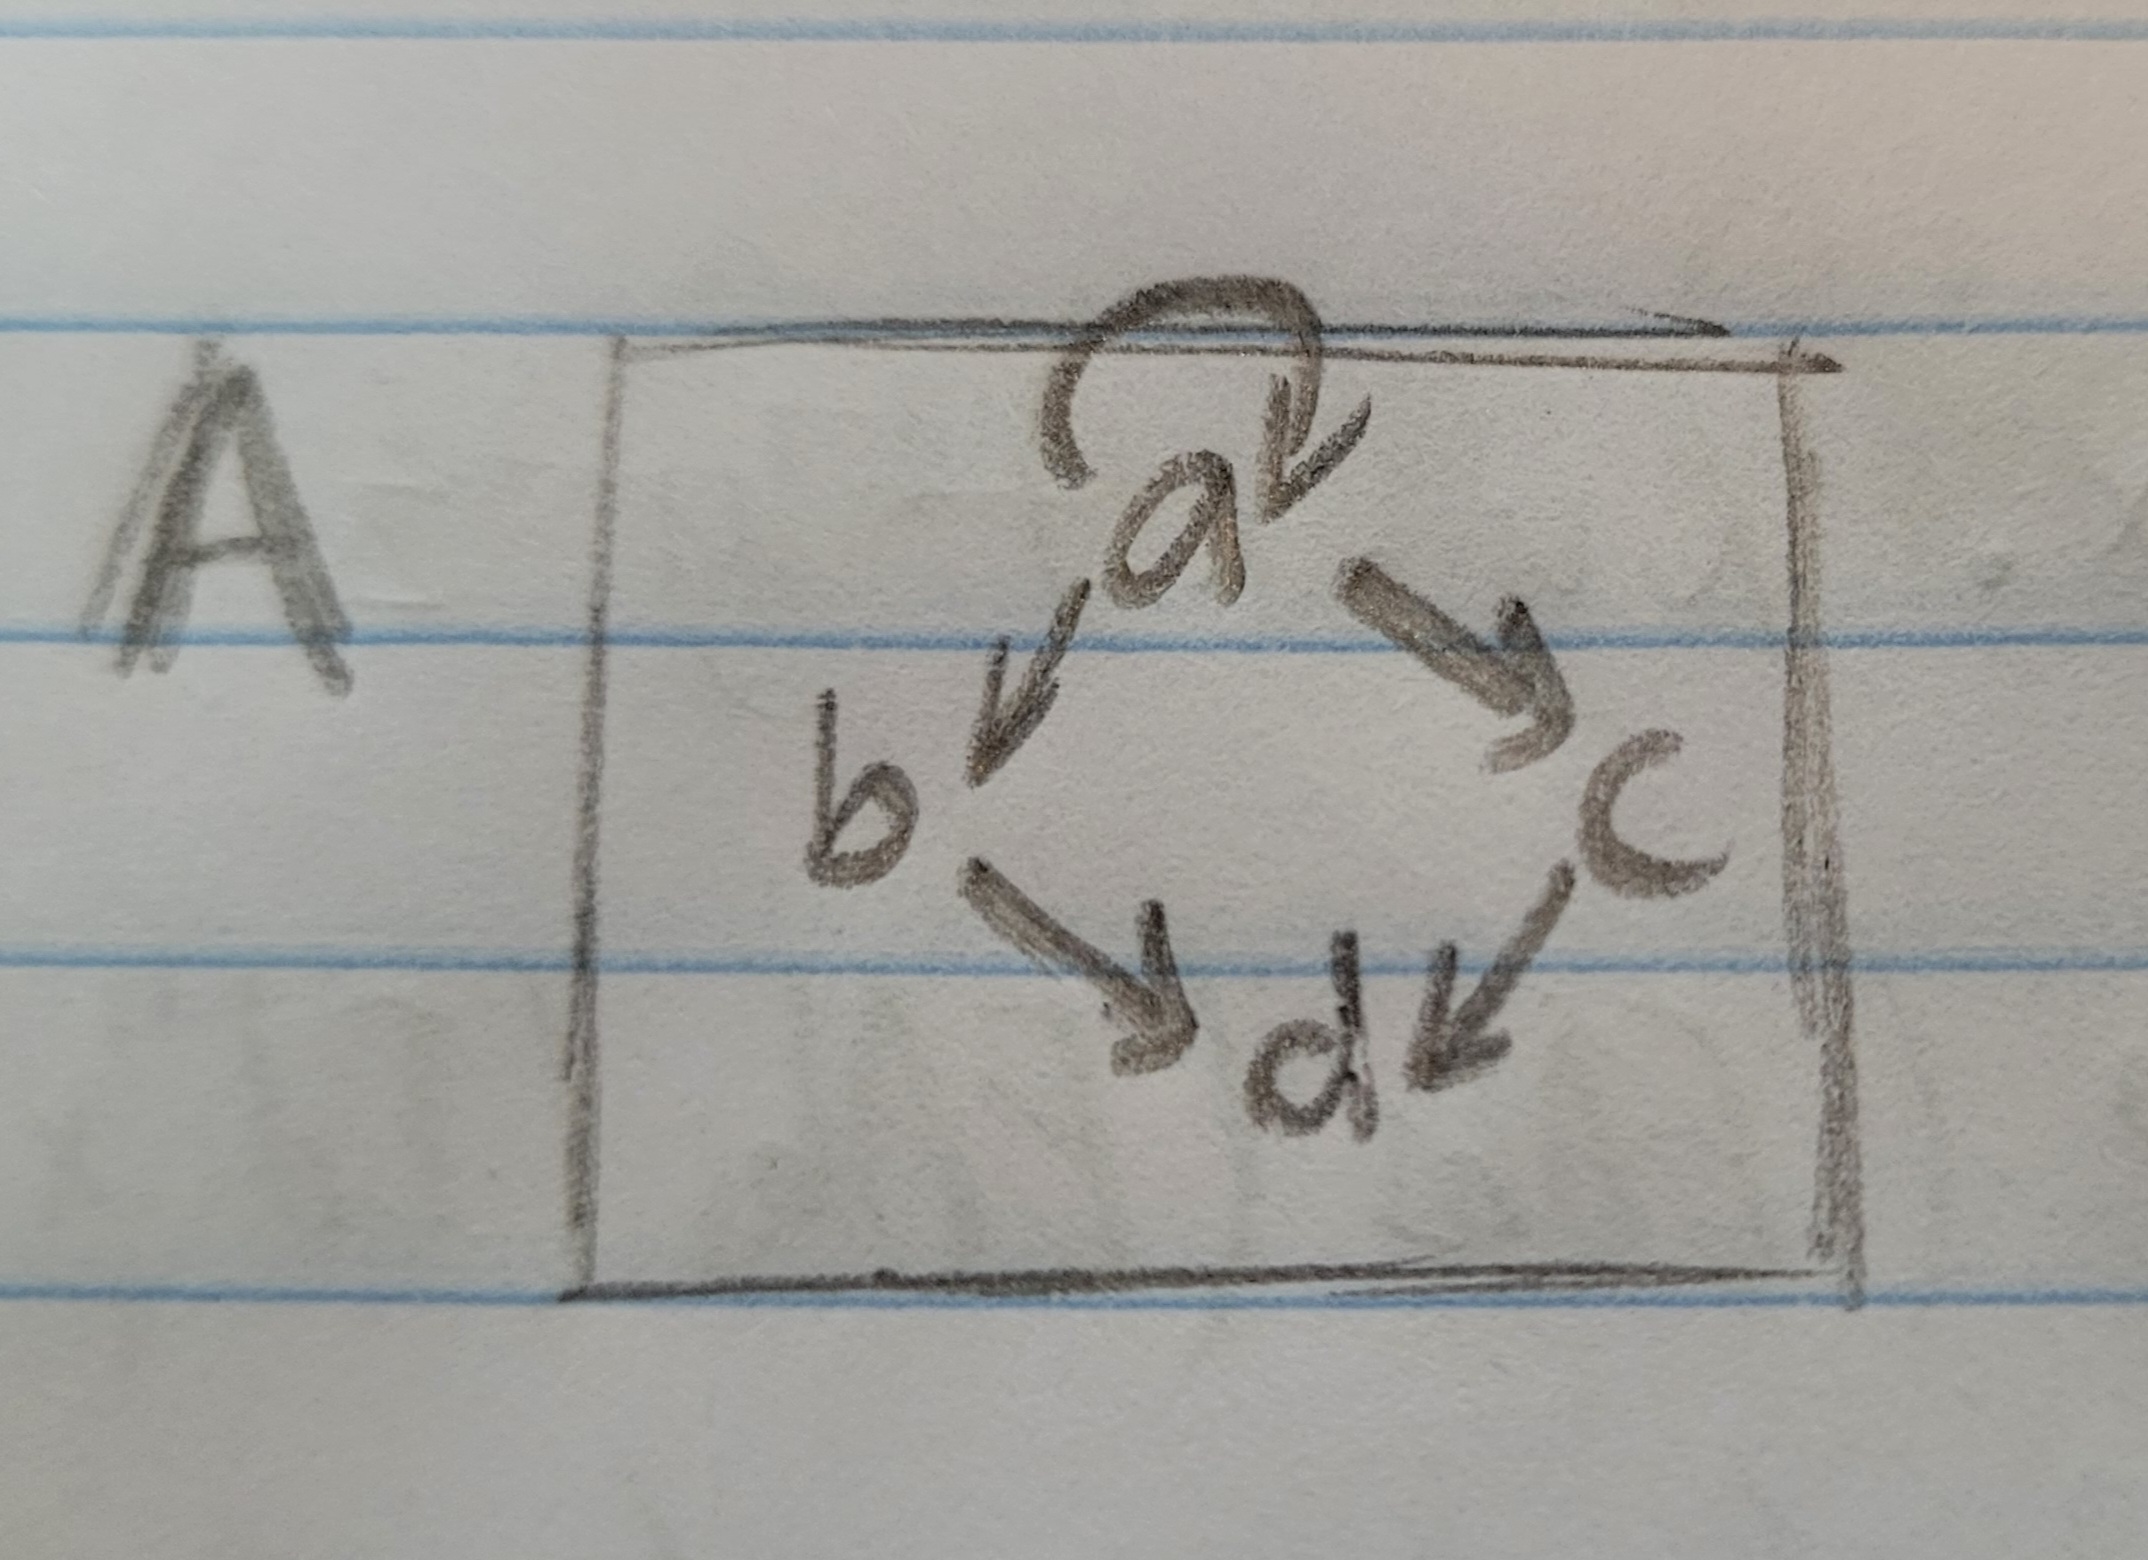 A
a
b
c
d